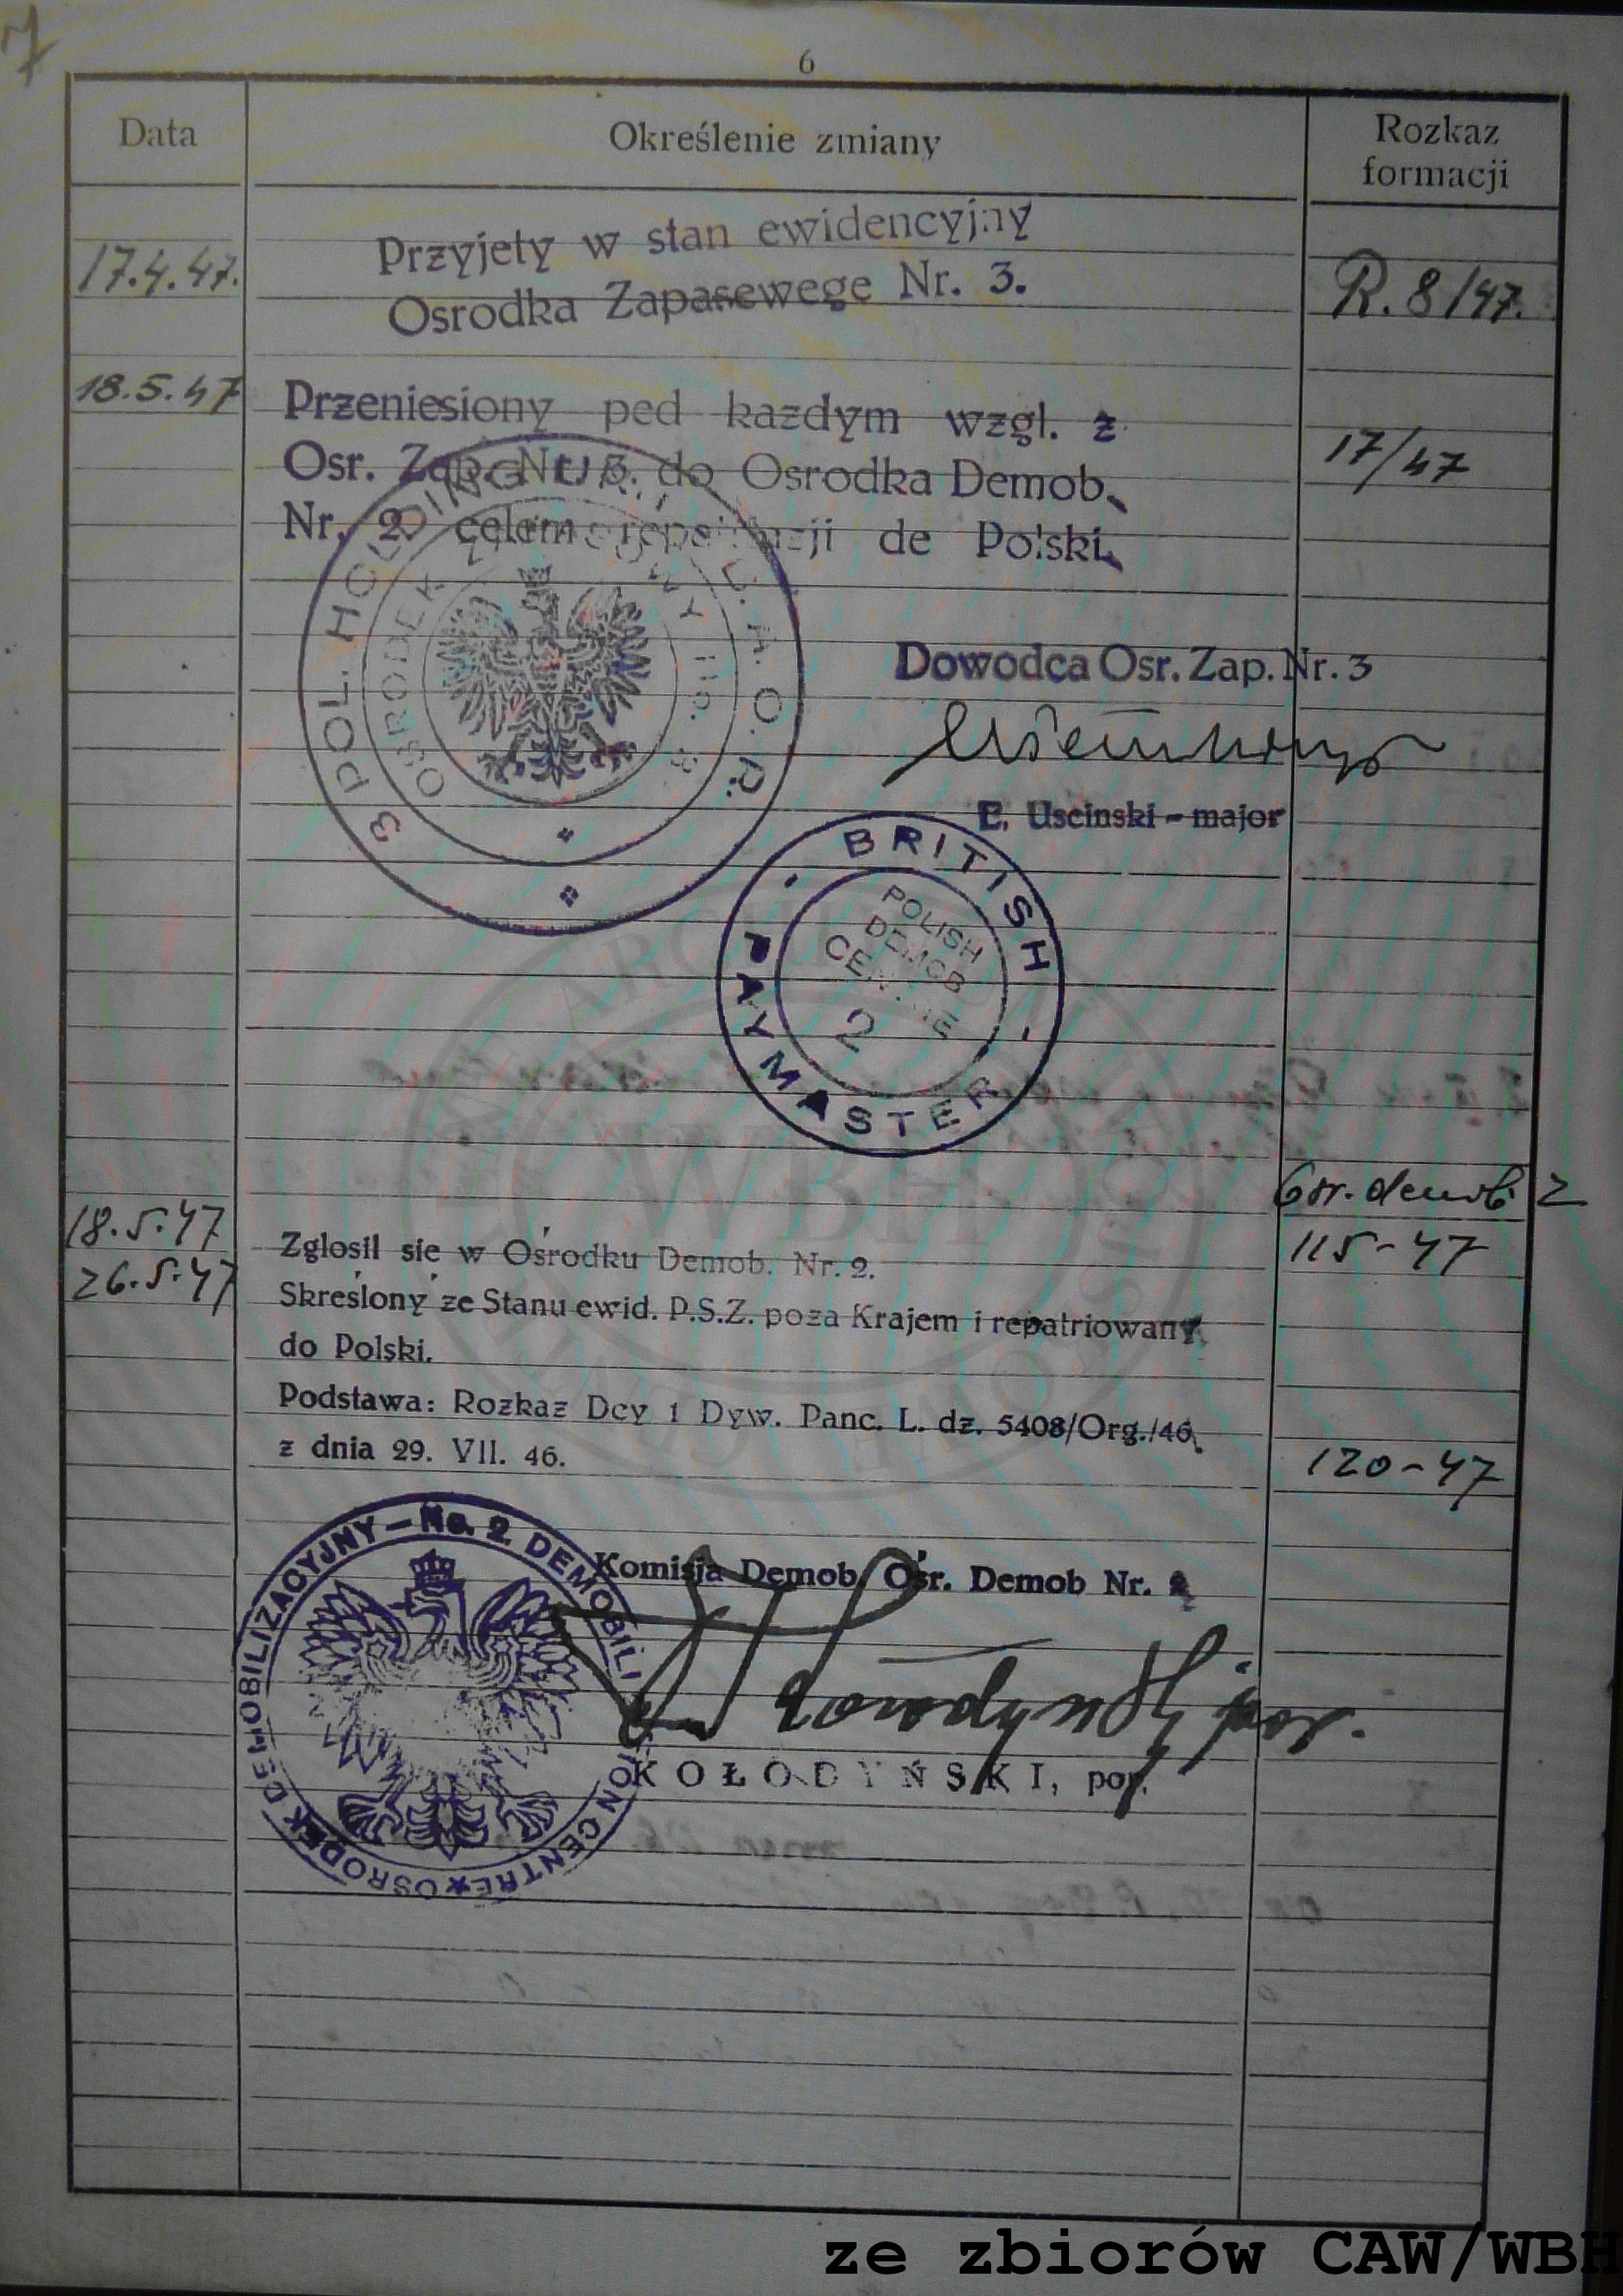 7
6
Data Określenie zmiany Rozkaz
formacji
17.4.47. Przyjety w stan ewidencyjny
Osrodka Zapasewege Nr. 3. R. 8/47.
18.5.47 Przeniesiony ped kazdym wzgl. z
Osr. Zap. Nr. 3. do Osrodka Demob. 17/47
Nr. 2 celem repatriacji de Polski.
3 POL. HOLDING UNIT
OSRODEK
Dowodca Osr. Zap. Nr. 3
E. Uscinski - major
BRITISH
PAYMASTER
POLISH
DEMOB
CENTRE
2
Osr. demob. 2
18.5.47 Zglosil sie w Ośrodku Demob. Nr. 2. 115-47
26.5.47 Skreślony ze Stanu ewid. P.S.Z. poza Krajem i repatriowany
do Polski.
Podstawa: Rozkaz Dcy 1 Dyw. Panc. L. dz. 5408/Org./46.
z dnia 29. VII. 46. 120-47
OSRODEK DEMOBILIZACYJNY - No. 2. DEMOBILI CENTRE
Komisja Demob. Ośr. Demob Nr. 2
por.
KOŁODYŃSKI, por.
WBH
ze zbiorów CAW/WBH